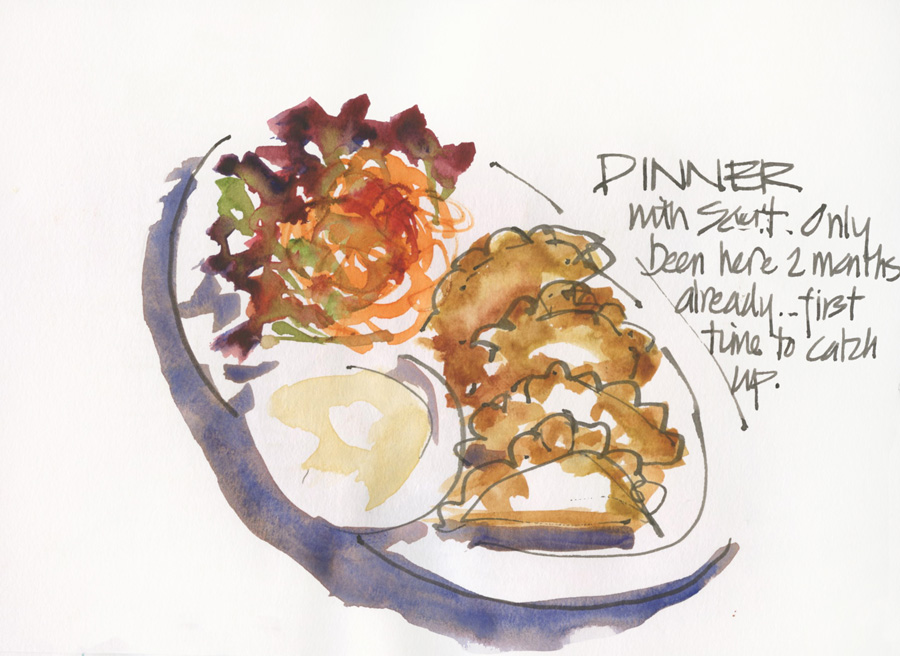 DINNER
with Scott. Only
been here 2 months
already...first
time to catch
up.